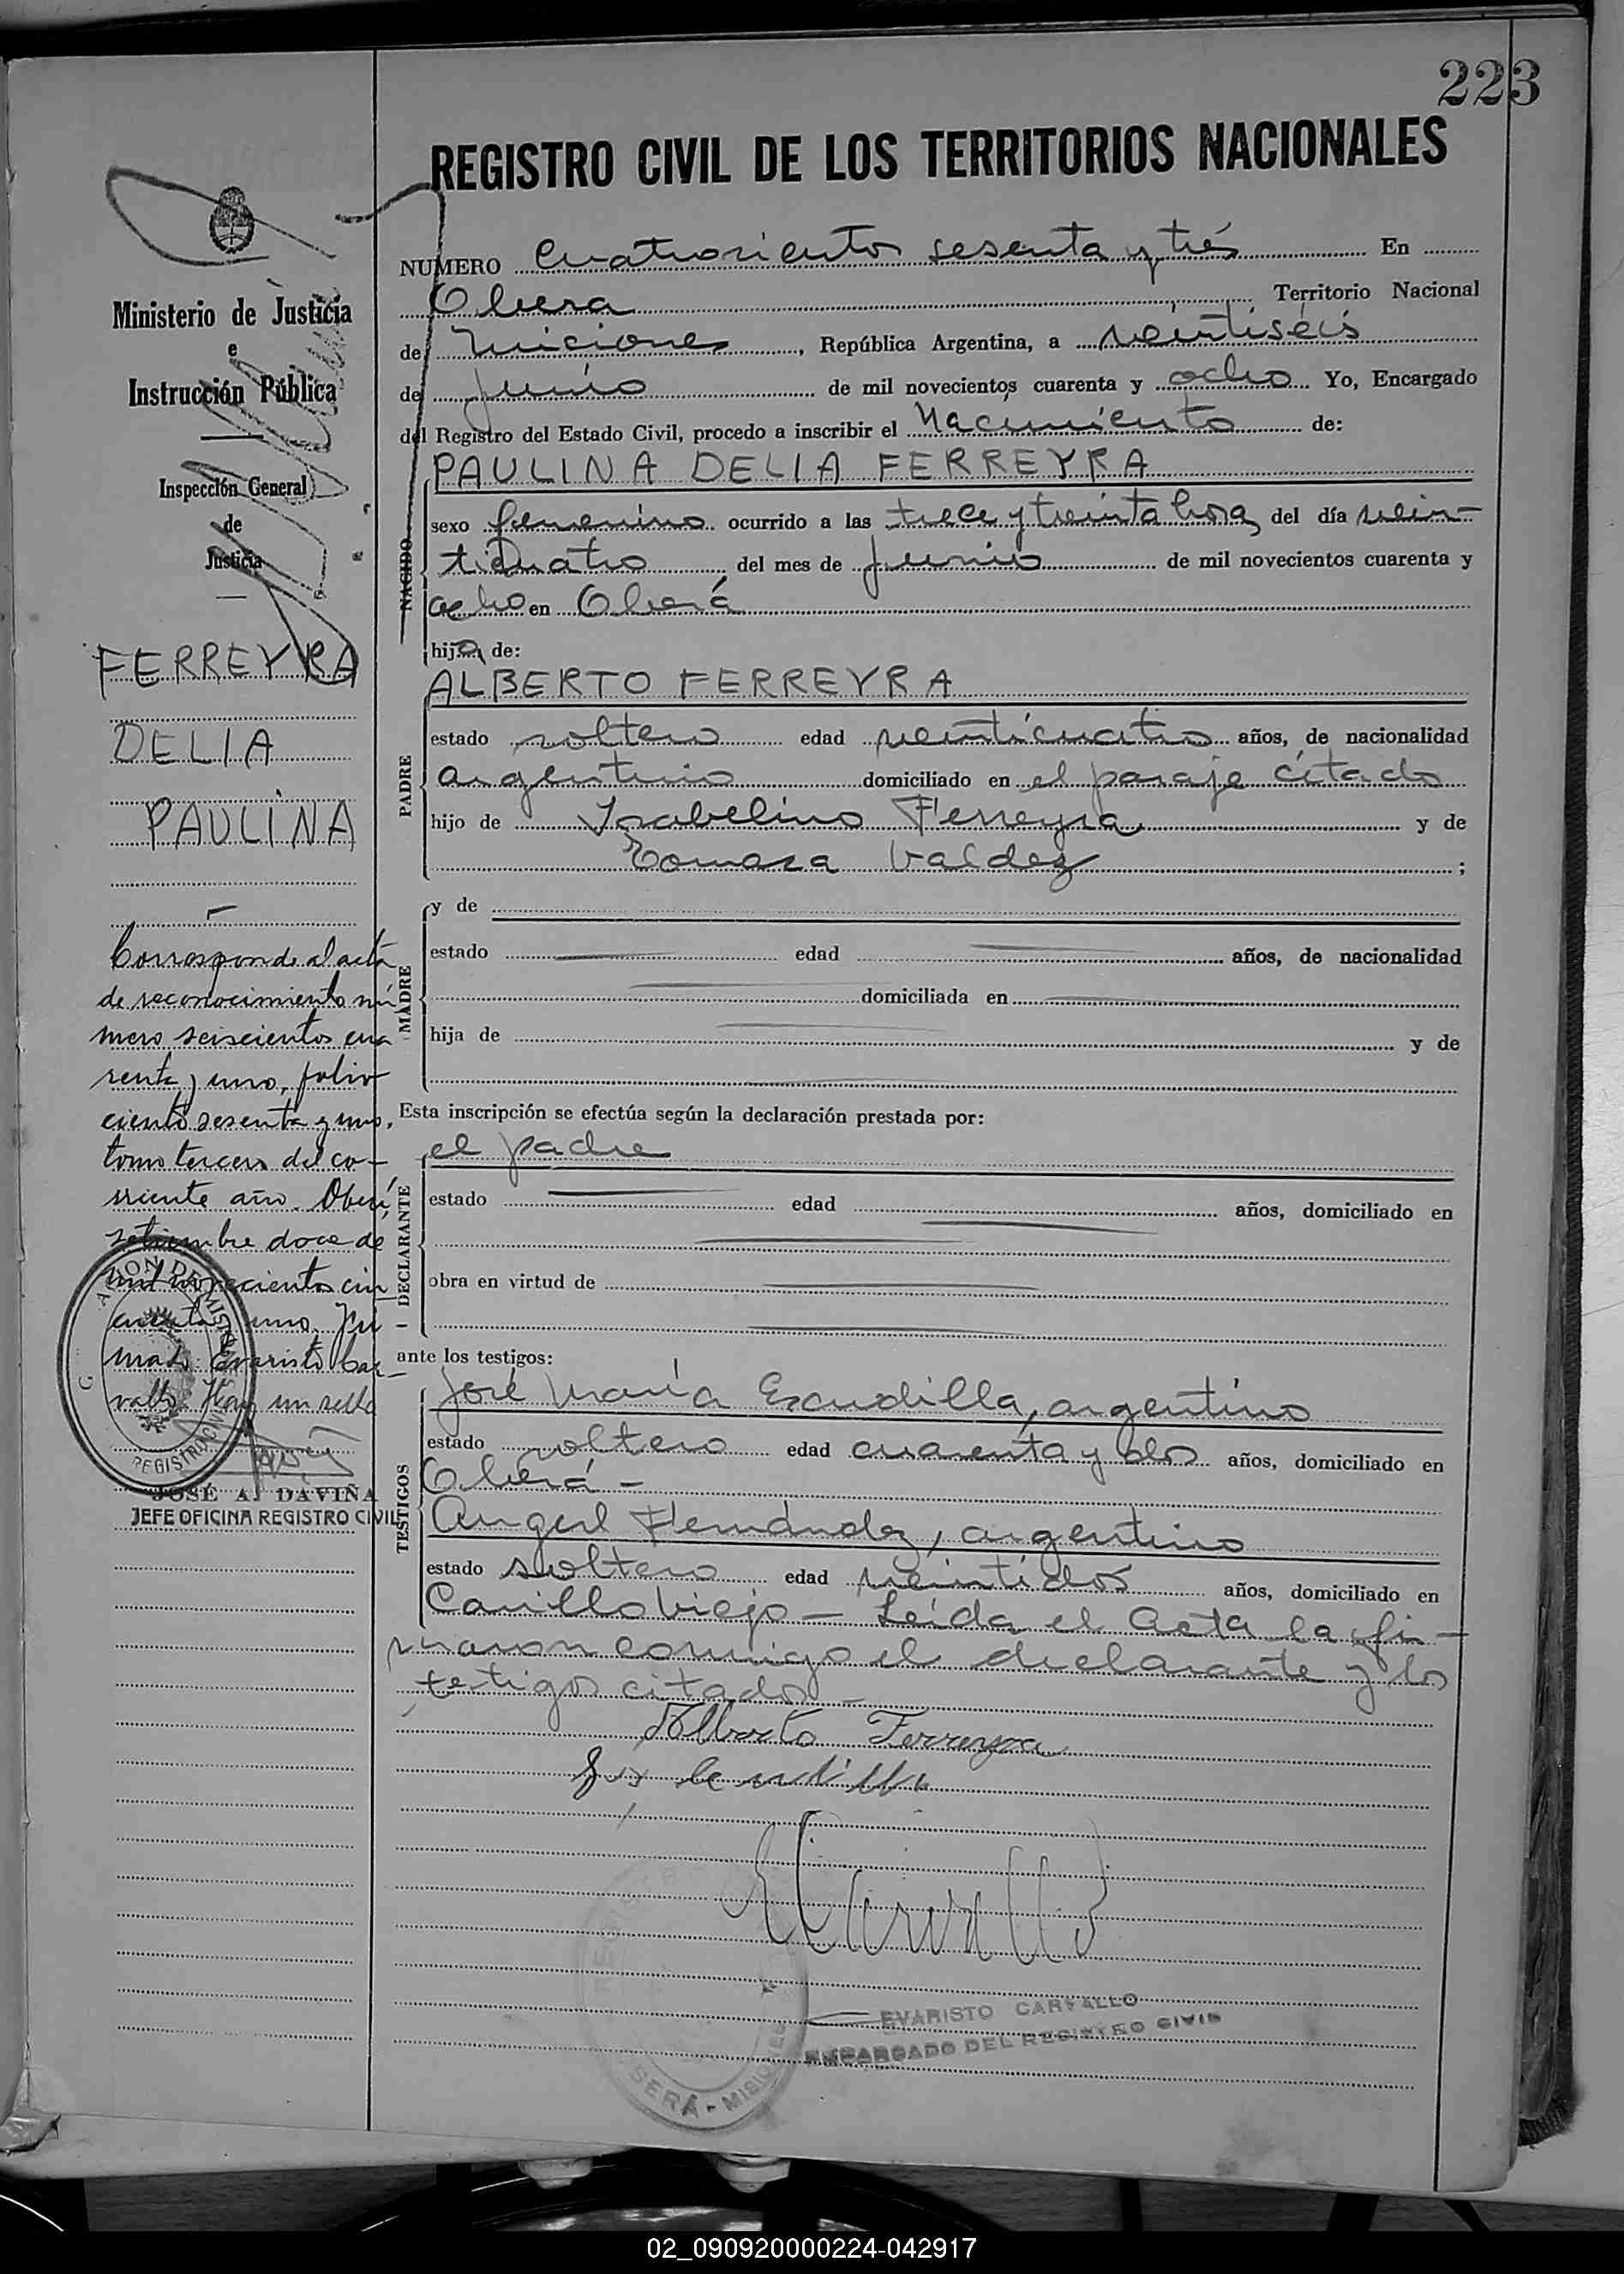 223
REGISTRO CIVIL DE LOS TERRITORIOS NACIONALES
NUMERO Cuatrocientos sesenta y trés En
Obera Territorio Nacional
de Miciones, República Argentina, a veintiséis
de Junio de mil novecientos cuarenta y ocho Yo, Encargado
del Registro del Estado Civil, procedo a inscribir el Nacimiento de:
PAULINA DELIA FERREYRA
NACIDO
sexo femenino ocurrido a las trece y treinta hora del día vein-
ticuatro del mes de Junio de mil novecientos cuarenta y
ocho en Oberá
hija de:
PADRE
ALBERTO FERREYRA
estado soltero edad veinticuatro años, de nacionalidad
argentino domiciliado en el paraje citado
hijo de Isabelino Ferreyra y de
Tomasa Valdez ;
MADRE
y de
estado edad años, de nacionalidad
domiciliada en
hija de y de
Esta inscripción se efectúa según la declaración prestada por:
DECLARANTE
el padre
estado edad años, domiciliado en
obra en virtud de
ante los testigos:
TESTIGOS
José María Escudilla, argentino
estado soltero edad cuarenta y dos años, domiciliado en
Oberá -
Angel Hernández, argentino
estado soltero edad veintidos años, domiciliado en
Carrillo Viejo - Leída el Acta la fir-
maron conmigo el declarante y los
testigos citados -
Alberto Ferreyra
EVARISTO CARVALLO
ENCARGADO DEL REGISTRO CIVIL
Ministerio de Justicia
e
Instrucción Pública
Inspección General
de
Justicia
FERREYRA
DELIA
PAULINA
Corresponde al acta
de reconocimiento nú
mero seiscientos cua
renta y uno, folio
ciento sesenta y uno,
tomo tercero del co-
rriente año. Oberá,
setiembre doce de
mil novecientos cin
cuenta y uno. Fir
mado: Evaristo Car-
vallo. Hay un sello
JOSÉ A. DAVIÑA
JEFE OFICINA REGISTRO CIVIL
02_090920000224-042917